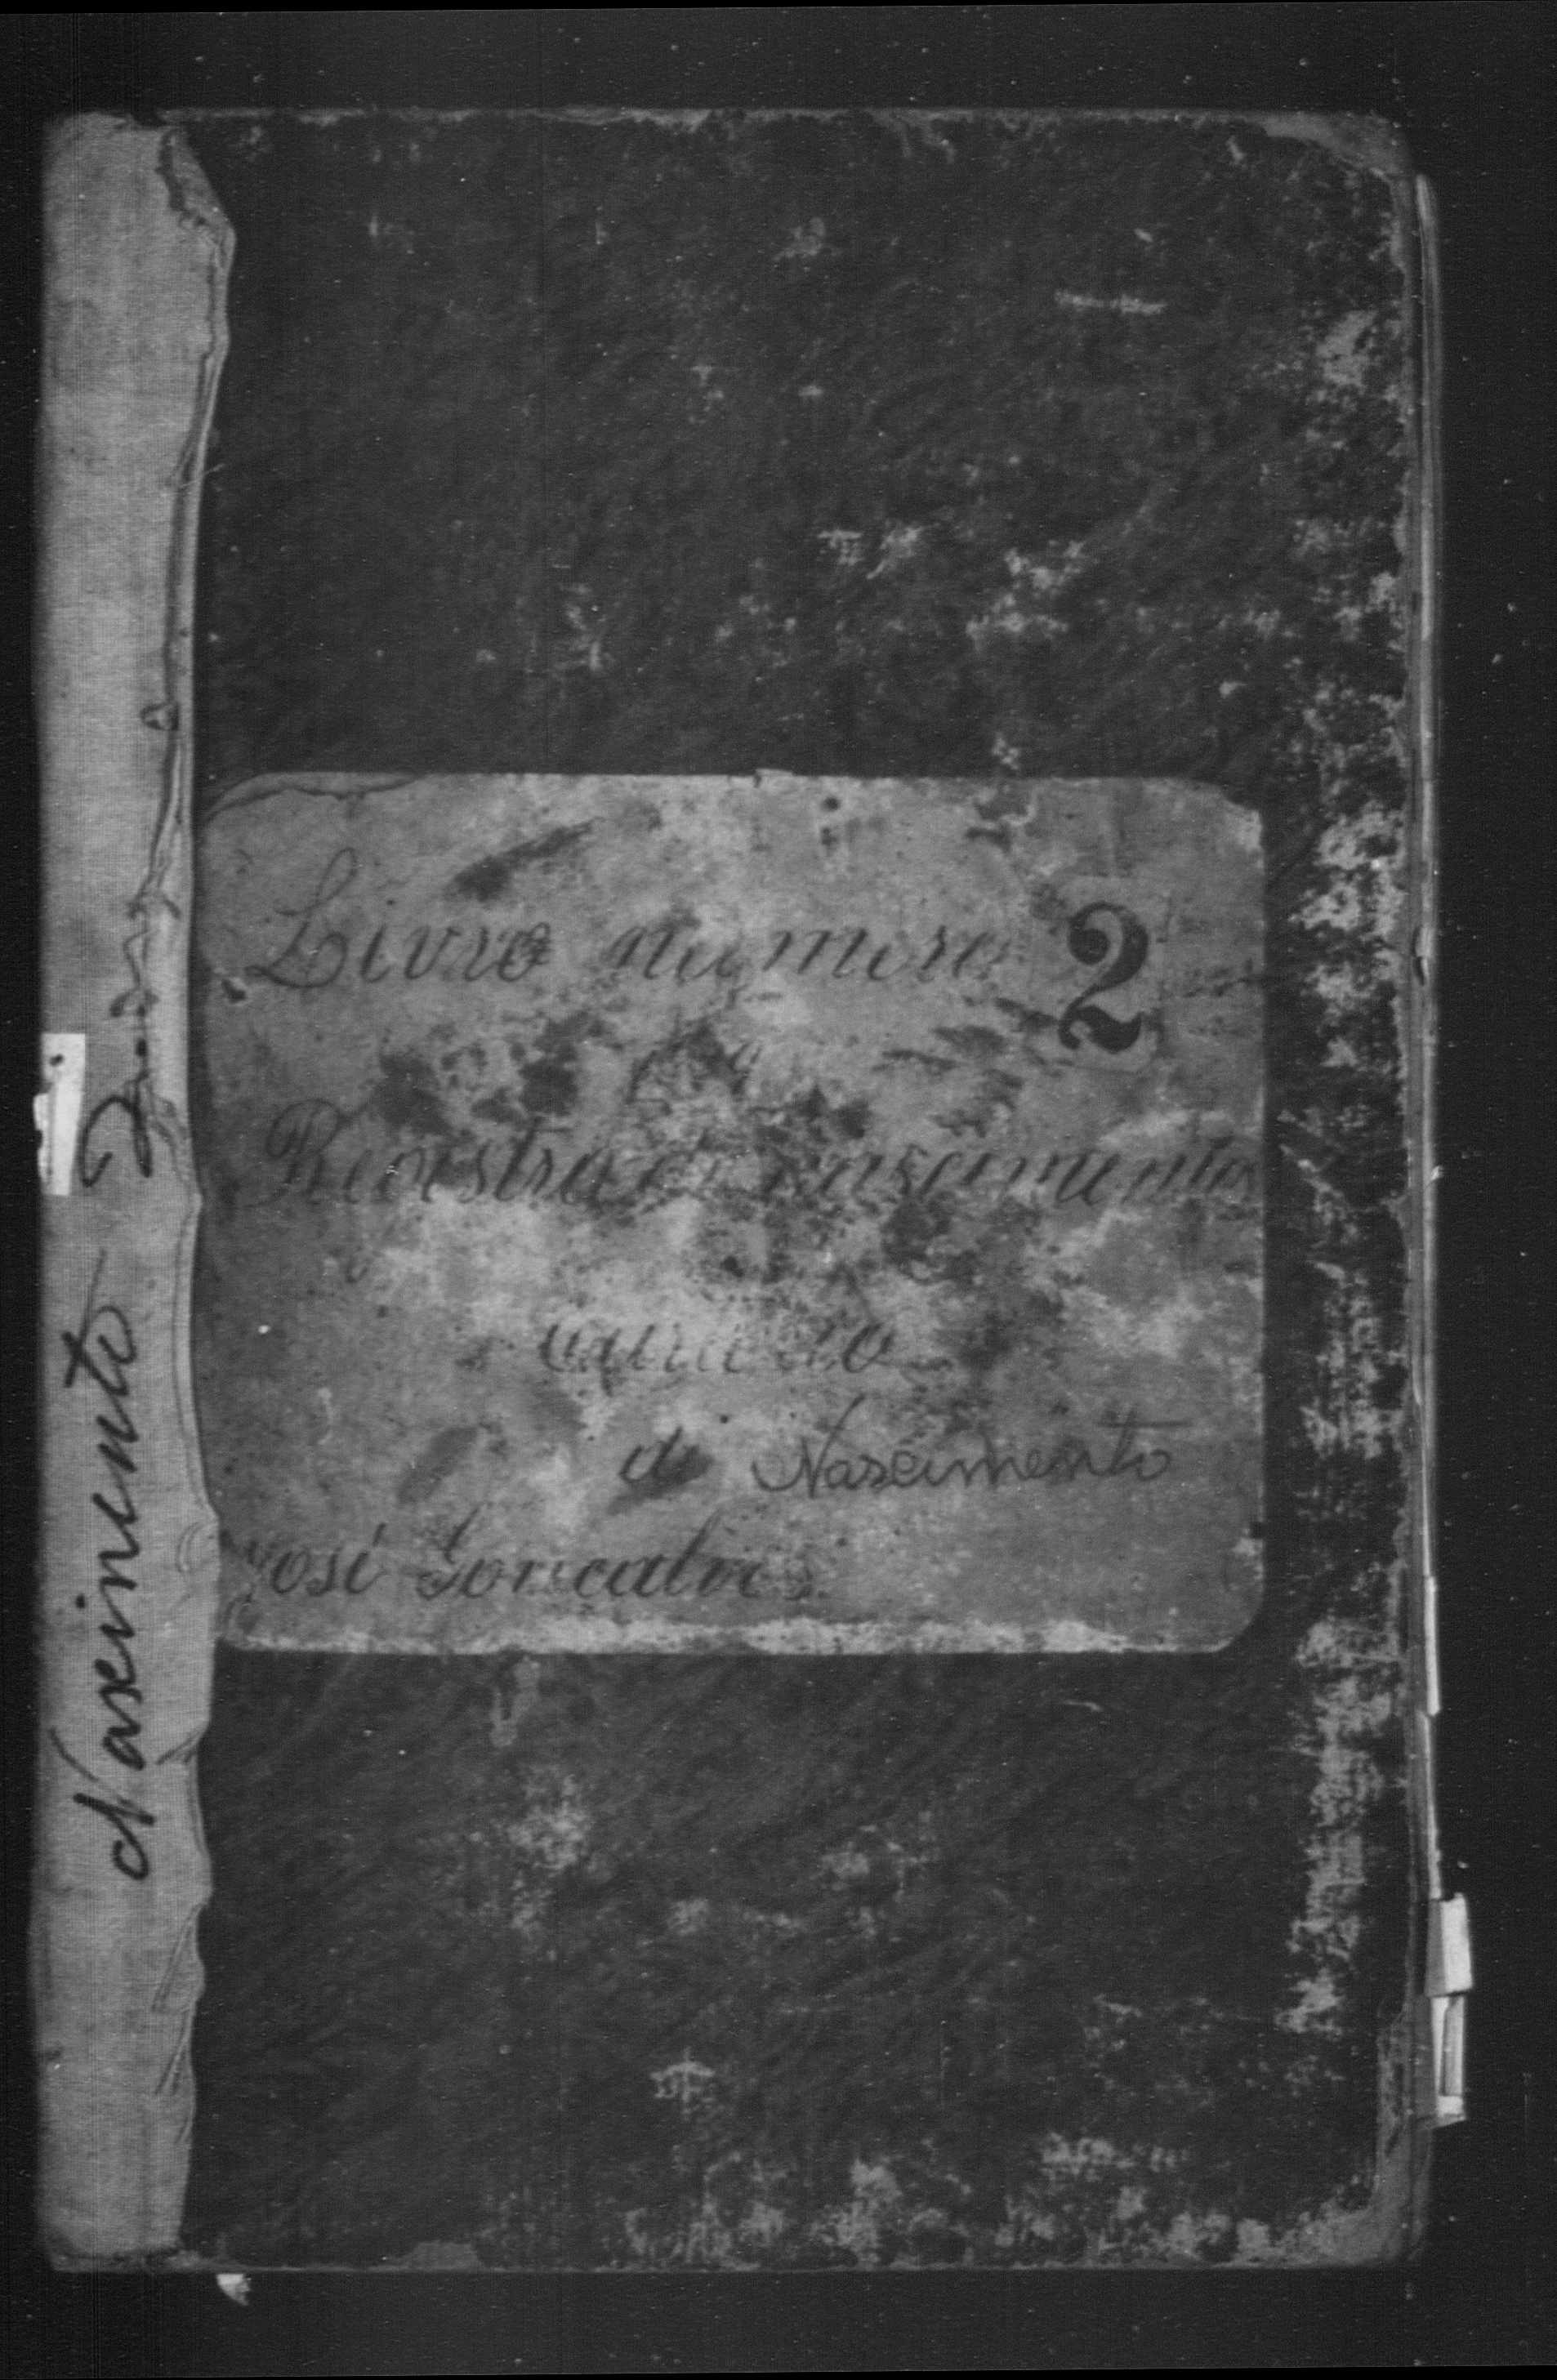 Nascimento
Livro numero 2
Registro de nascimentos
de Nascimento
José Goncalves